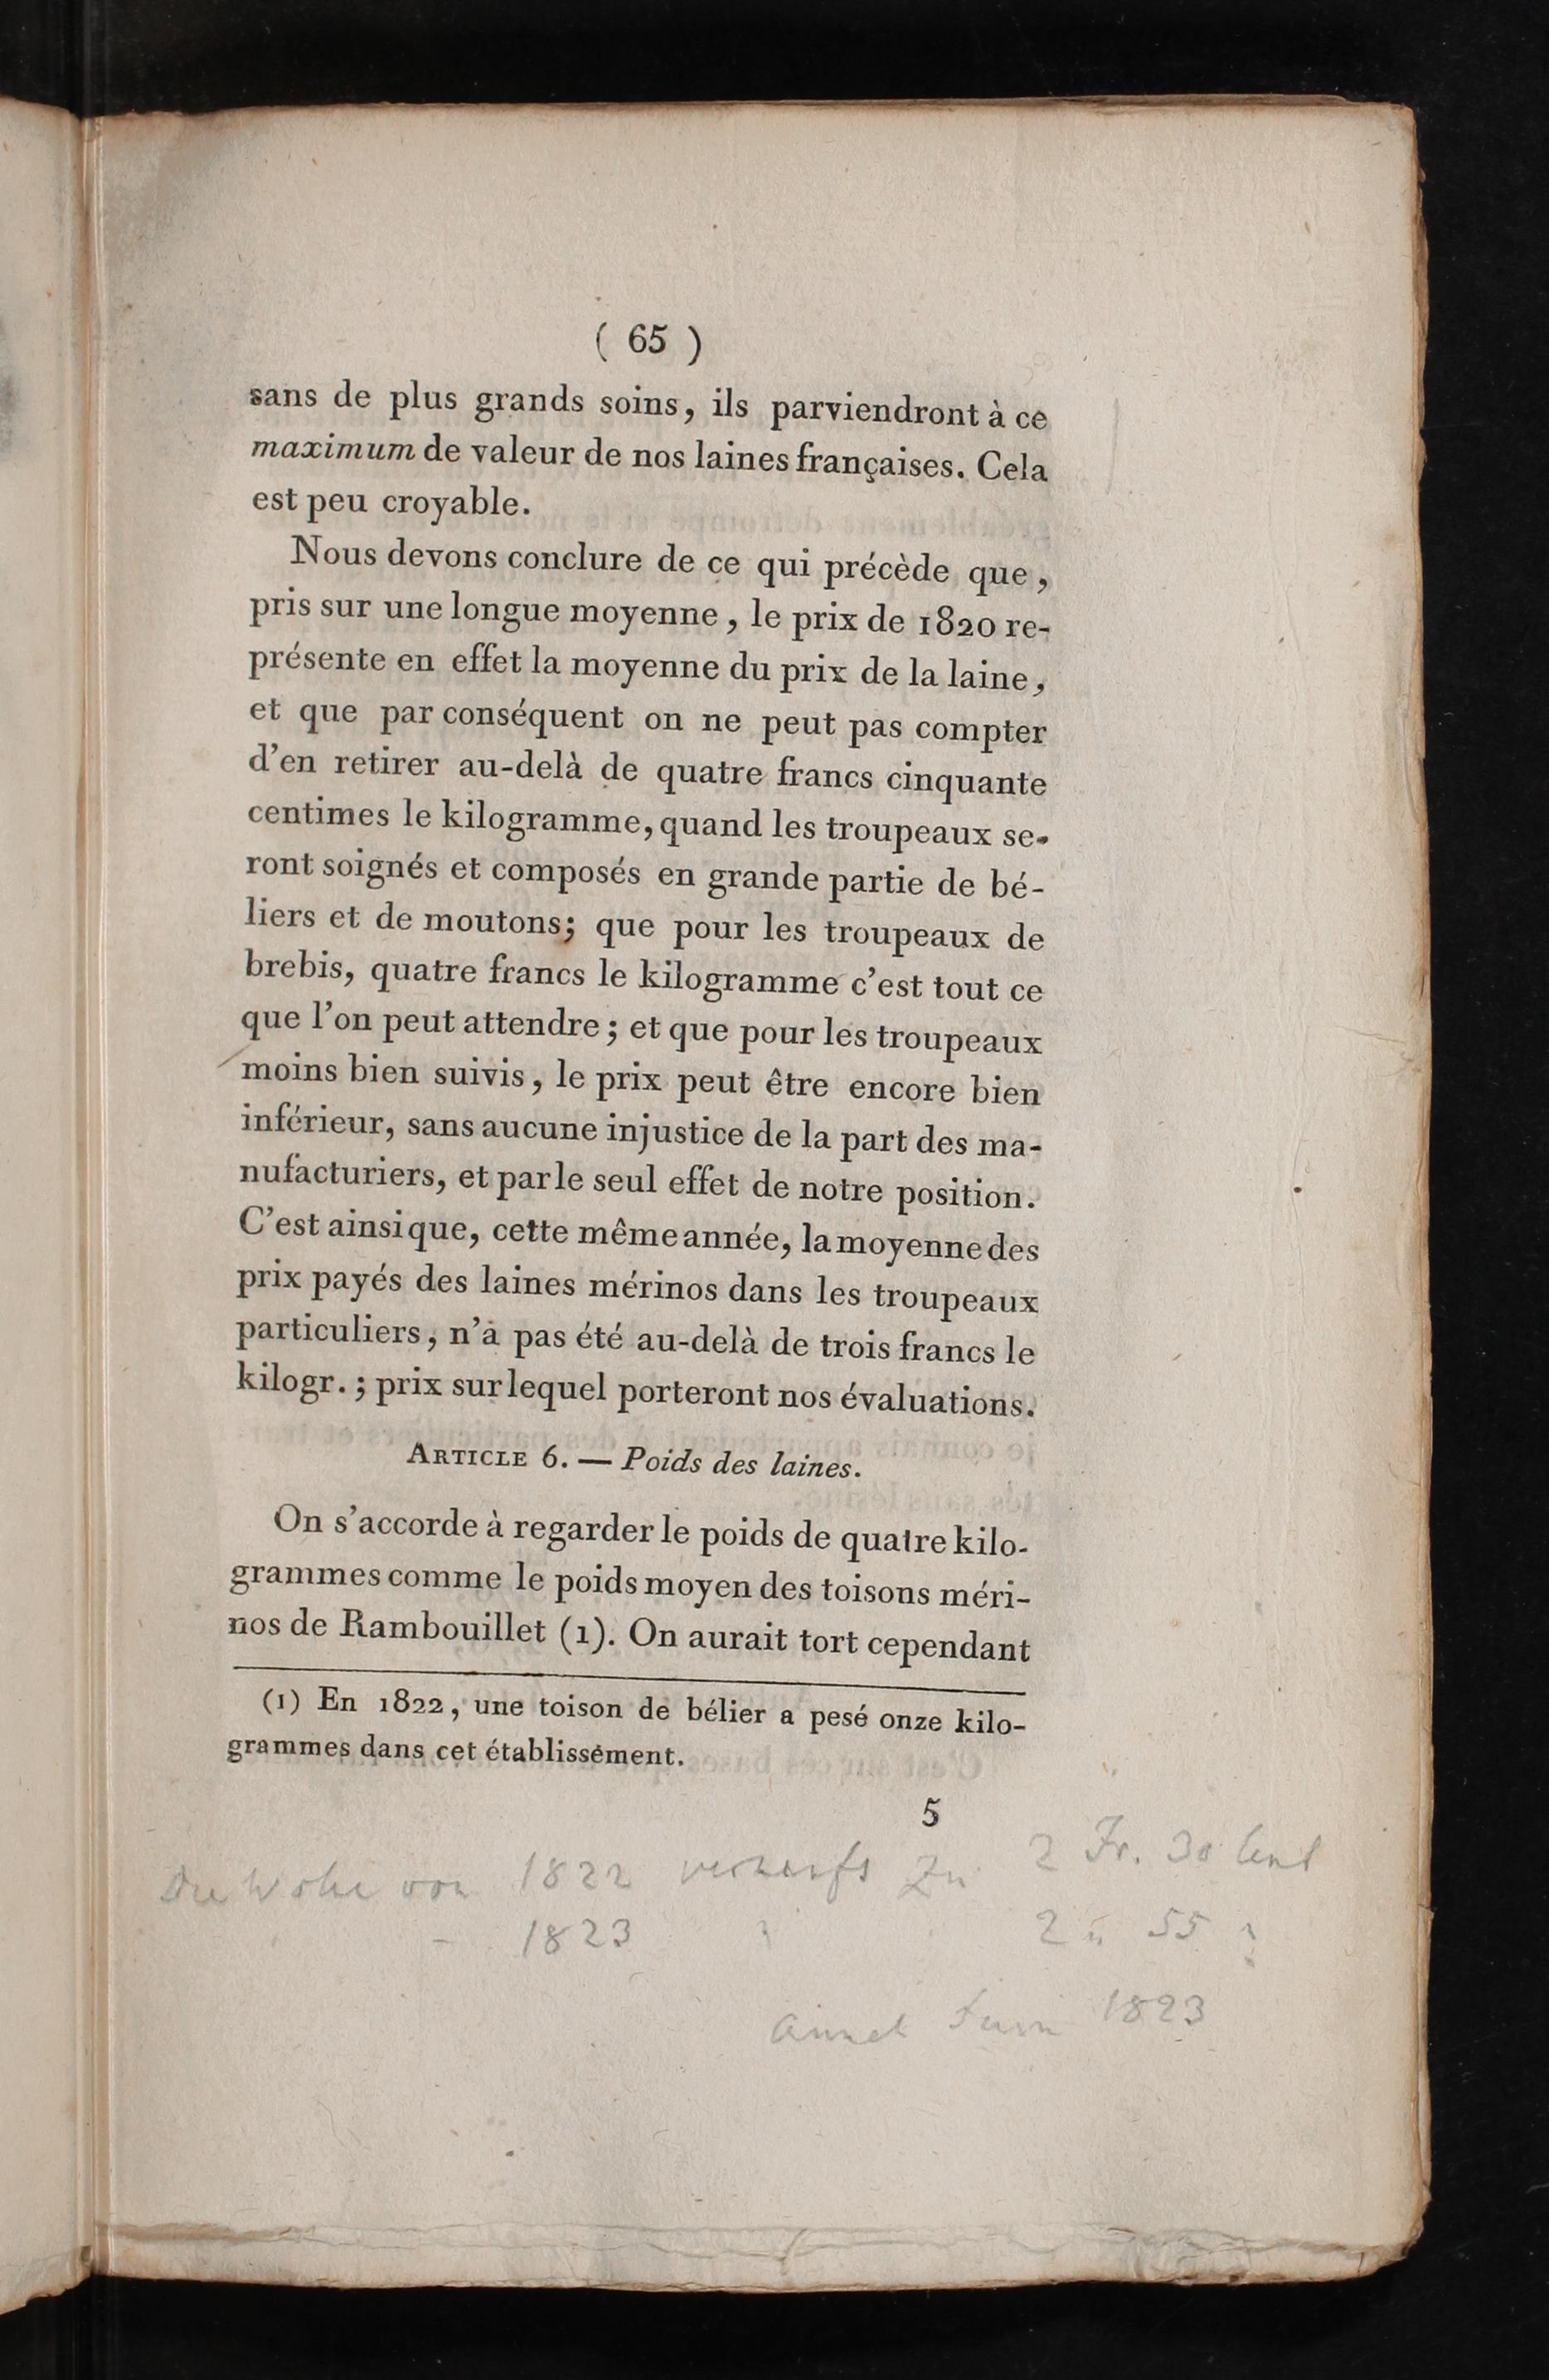 ( 65 )
sans de plus grands soins, ils parviendront à ce
maximum de valeur de nos laines françaises. Cela
est peu croyable.
Nous devons conclure de ce qui précède que,
pris sur une longue moyenne, le prix de 1820 re-
présente en effet la moyenne du prix de la laine,
et que par conséquent on ne peut pas compter
d'en retirer au-delà de quatre francs cinquante
centimes le kilogramme, quand les troupeaux se-
ront soignés et composés en grande partie de bé-
liers et de moutons; que pour les troupeaux de
brebis, quatre francs le kilogramme c'est tout ce
que l'on peut attendre; et que pour les troupeaux
moins bien suivis, le prix peut être encore bien
inférieur, sans aucune injustice de la part des ma-
nufacturiers, et par le seul effet de notre position.
C'est ainsi que, cette même année, la moyenne des
prix payés des laines mérinos dans les troupeaux
particuliers, n'a pas été au-delà de trois francs le
kilogr.; prix sur lequel porteront nos évaluations.
ARTICLE 6. — Poids des laines.
On s'accorde à regarder le poids de quatre kilo-
grammes comme le poids moyen des toisons méri-
nos de Rambouillet (1). On aurait tort cependant
(1) En 1822, une toison de bélier a pesé onze kilo-
grammes dans cet établissement.
5
Die Wolle von 1822 verkauft zu 2 Fr. 30 Cent
- 1823 2 " 55
1823